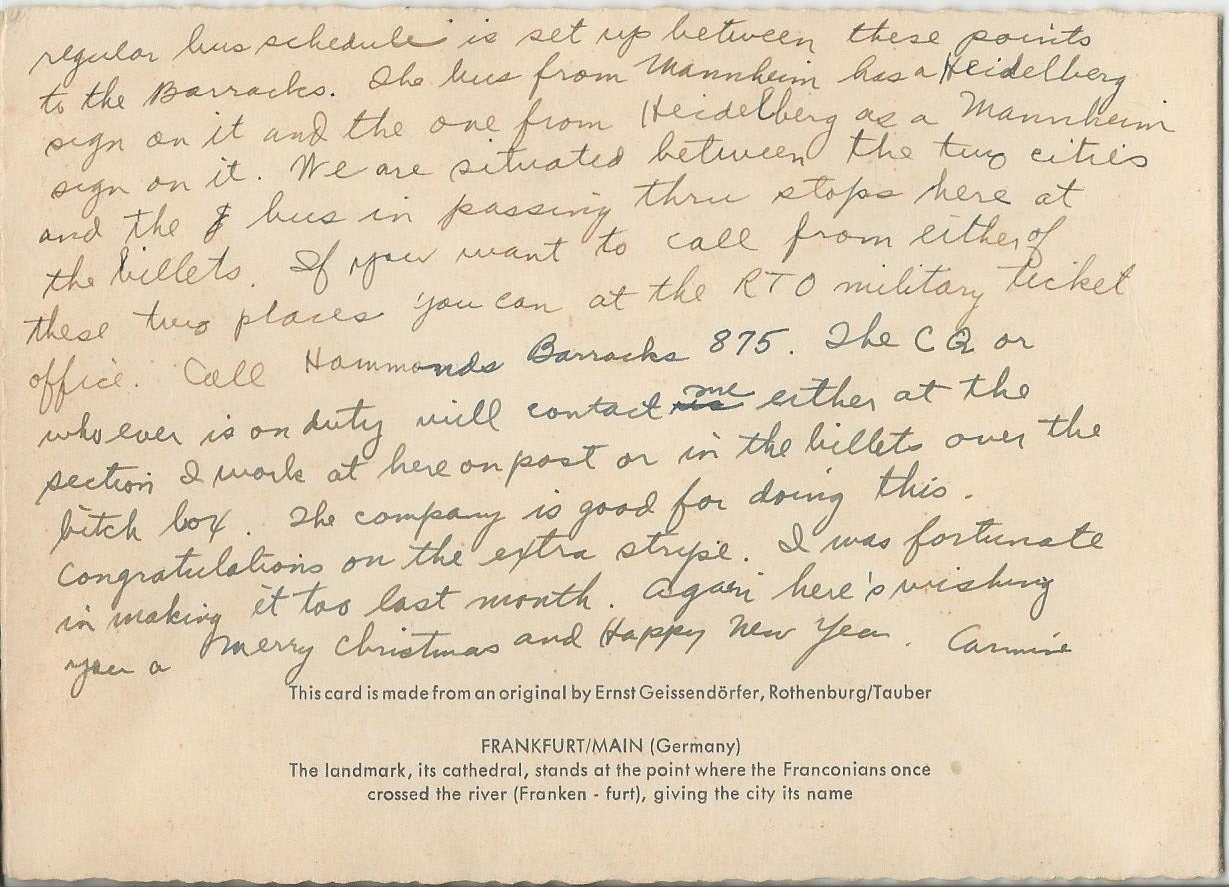 regular bus schedule is set up between these points
to the Barracks. The bus from Mannheim has a Heidelberg
sign on it and the one from Heidelberg as a Mannheim
sign on it. We are situated between the two cities
and the bus in passing thru stops here at
the billets. If you want to call from either of
these two places you can at the RTO military ticket
office. Call Hammonds Barracks 875. The CQ or
who ever is on duty will contact me either at the
section I work at here on post or in the billets over the
bitch box. The company is good for doing this.
Congratulations on the extra stripe. I was fortunate
in making it too last month. Again here's wishing
you a Merry Christmas and Happy New Year. Carmine
This card is made from an original by Ernst Geissendörfer, Rothenburg/Tauber
FRANKFURT/MAIN (Germany)
The landmark, its cathedral, stands at the point where the Franconians once
crossed the river (Franken - furt), giving the city its name